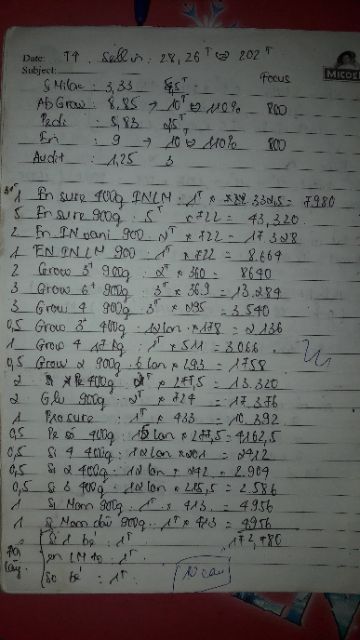 Date: T4. Sell in: 28,26T ⇒ 202T
Subject:
MICOS
Focus
S Milac : 3,33
Ab Grow : 8,85 → 10T ⇒ 110% 800
Pedi : 5,83 25T
En : 9 → 10 ⇒ 110% 800
Audit : 1,25 3
1 En sure 400g INLM : 1T × 332,5 = 7980
5 En sure 900g : 5T × 722 = 43,320
2 En IN vani 900 2T × 722 = 17328
1 EN IN LM 900 : 1T × 722 = 8.664
2 Grow 3+ 900g : 2T × 360 = 8640
3 Grow 6+ 900g : 3T × 369 = 13.284
3 Grow 4 900g : 3T × 295 = 3.540
0,5 Grow 3+ 400g : 12 lon × 178 = 2136
1 Grow 4 1,7 kg : 1T × 511 = 3.066
0,5 Grow 2 900g : 6 lon × 293 = 1758
2 400g : 2T × 277,5 = 13.320
2 Glu 900g : 2T × 724 = 17.376
1 Prosure : 1T × 433 = 10.392
0,5 400g : 15 lon × 277,5 = 4162,5
0,5 Si 4 400g : 12 lon × 201 = 2412
0,5 Si 2 400g : 12 lon × 242 = 2.904
0,5 Si 3 400g : 12 lon × 215,5 = 2.586
1 Si Mom 900g : 1T × 413 = 4956
1 Si Mom 900g : 1T × 413 = 4956
Si 1 bé : 1T 172,780
en LM to : 1T
So bé : 1T
10 cau